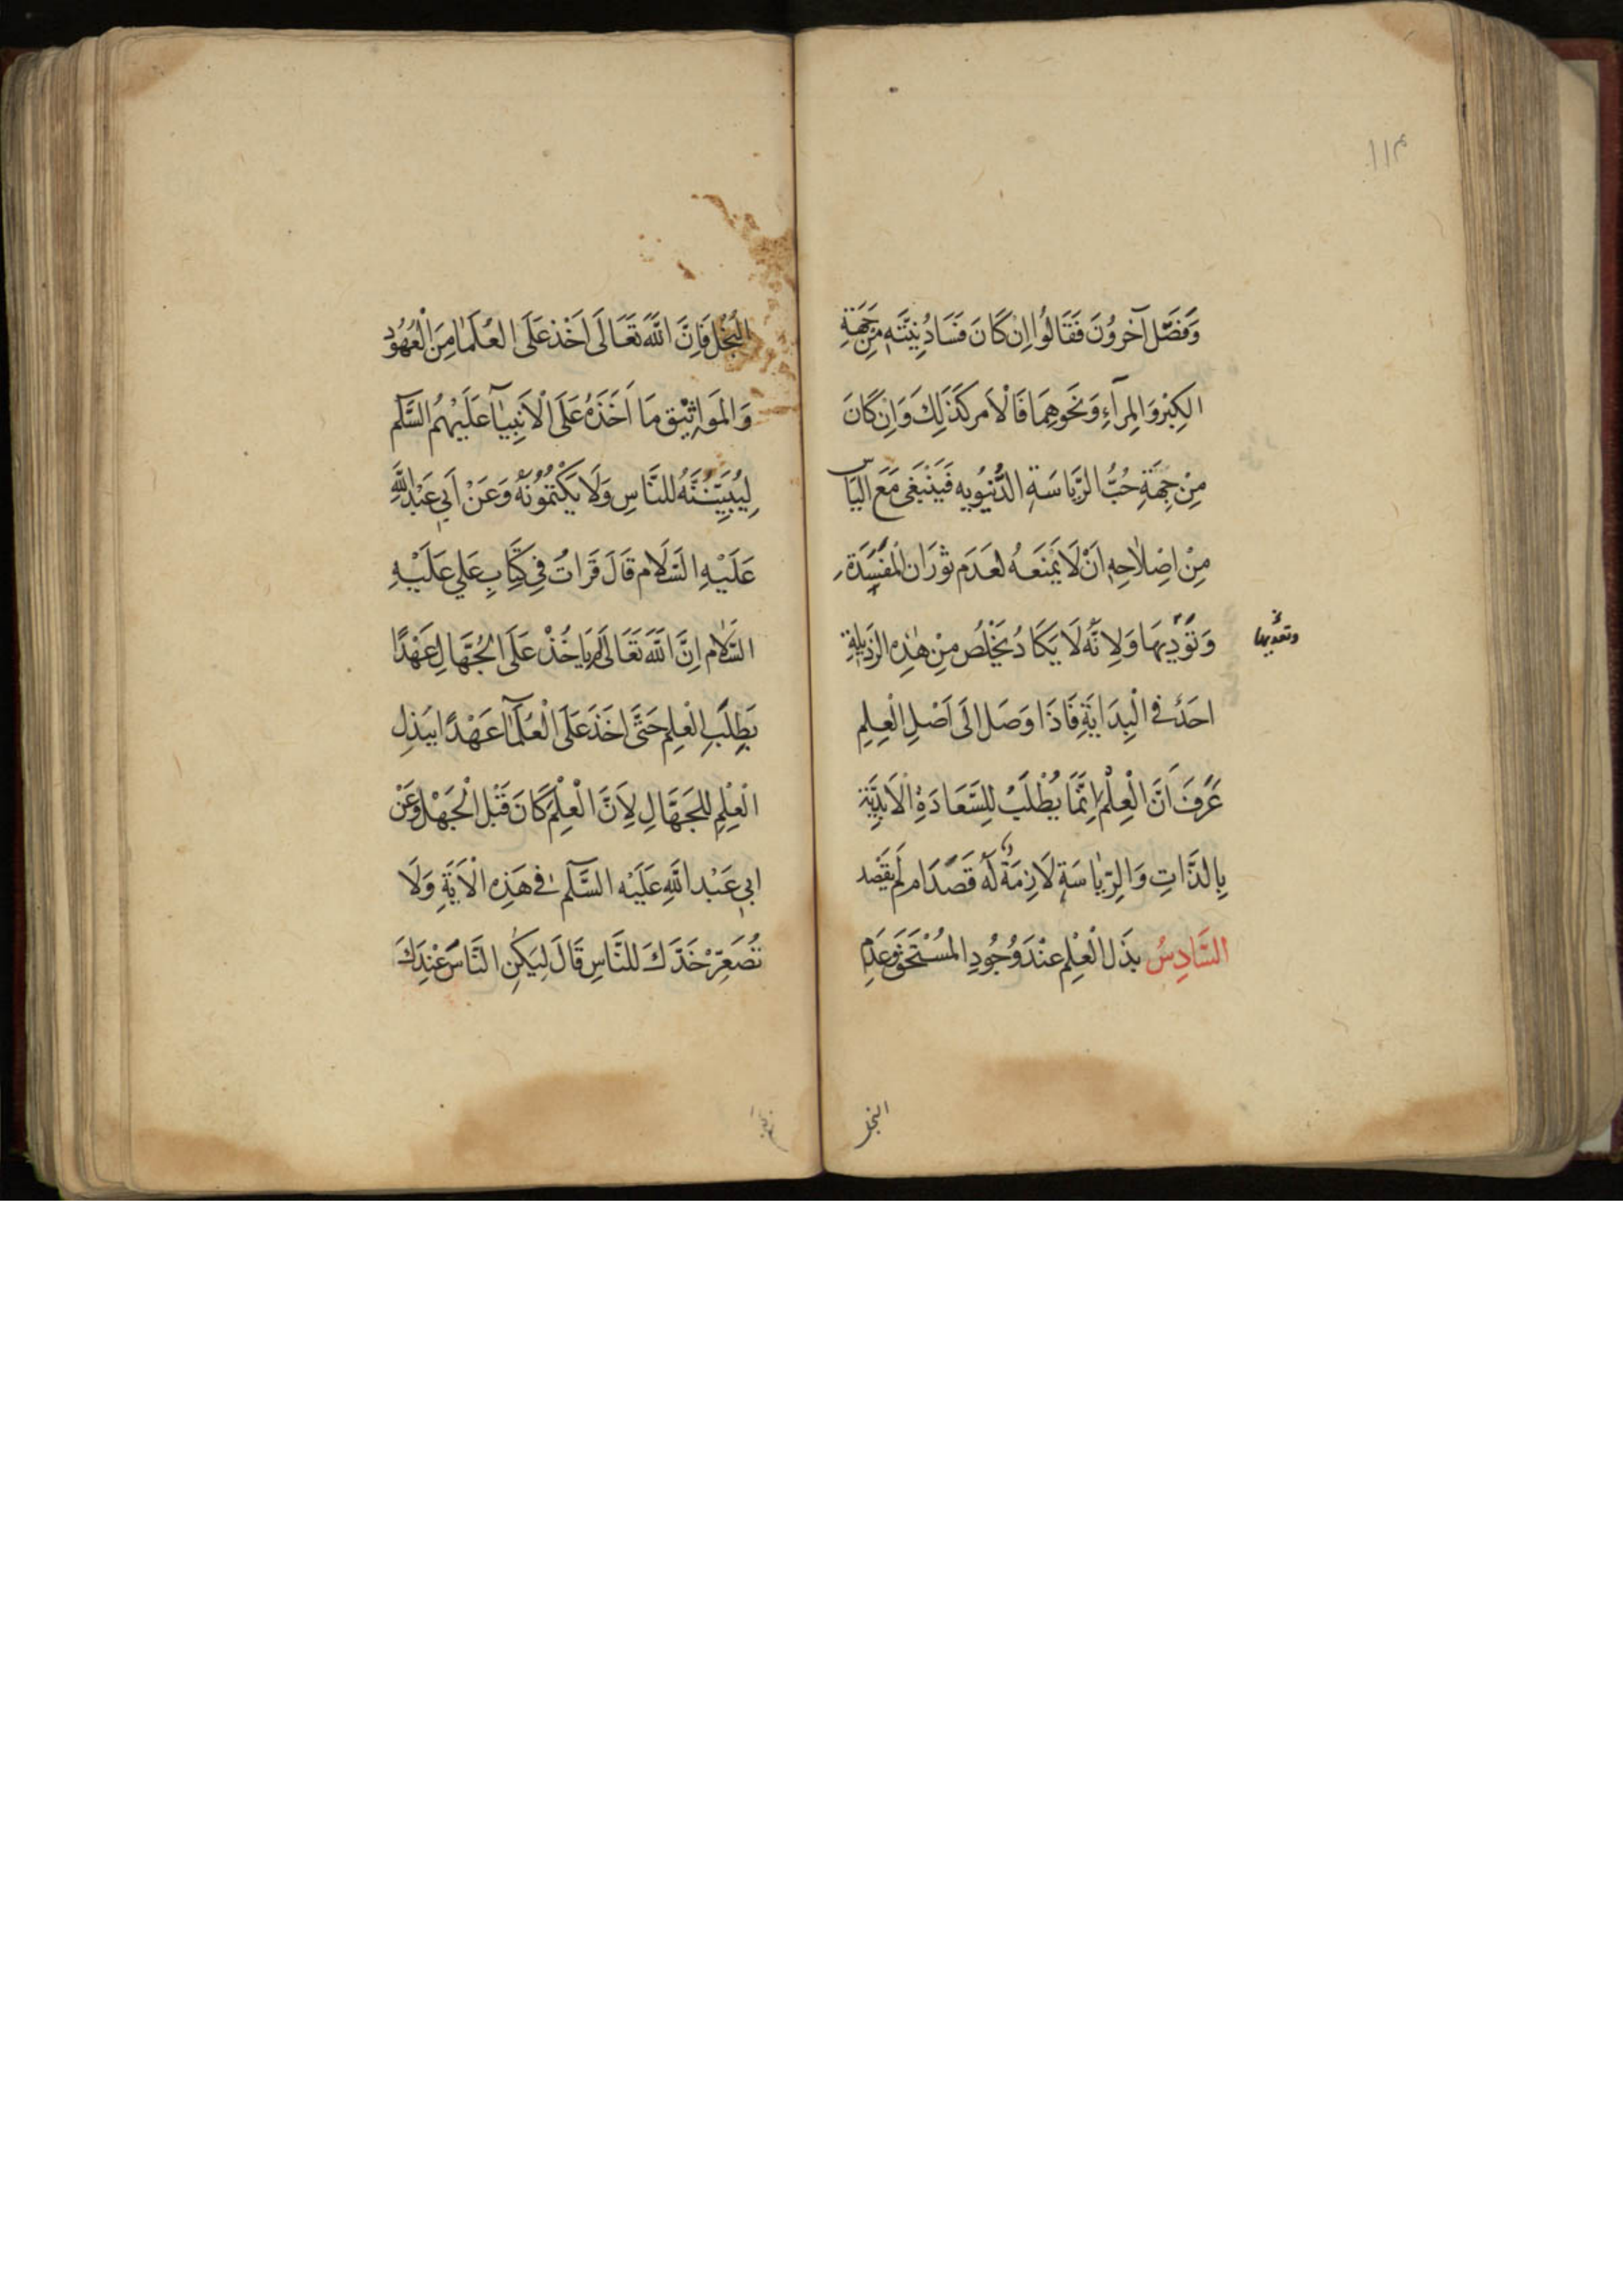 ١١٣
وَفَصَّلَ آخَرُونَ فَقَالُوا اِنْ كَانَ فَسَادُ نِيَّتِهِ مِنْ جِهَةِ
الكِبْرِ وَالمِرآءِ وَنَحوِهِمَا فَالْاَمر كَذَلِكَ وَاِنْ كَانَ
مِنْ جِهَةِ حُبُّ الرِّيَاسَةِ الدُّنيَويه فَيَنْبَغى مَعَ اليَاسِ
مِنْ اِصْلَاحِهِ اَنْ لَا يَمْنَعَهُ لعَدَم ثوَرَان المَفْسَدَة
وَتَؤَدِّيهَا وَلِانَّه لَا يَكَادُ يَخْلُصُ مِنْ هٰذِه الرَّذِيلَةِ
وتعدّيها
احَدٌ في الْبِدَايَةِ فَاذَا وَصَلَ الَى اَصْلِ الْعِلمِ
عَرَفَ اَنَّ الْعِلْمَ اِنَّمَا يُطْلَبُ لِلسَّعَادَةِ الْاَبَدِيَّة
بِالذَّاتِ وَالرِّيَاسَة لَازِمَةٌ لَهُ قَصَدَ ام لَم يَقْصد
السَّادِسُ بَذل الْعِلْمِ عنْدَ وُجُودِ المُسْتَحَق وَعَدَم
البخل
الْبُخْل فَاِنَّ اللهَ تَعَالَى اَخَذ عَلَى العُلَمَا مِنَ الْعُهُوْدِ
وَالمَوَاثِيْق مَا اَخَذَهُ عَلَى الْاَنبِيَآ عَلَيْهِمُ السَّلٰم
لِيُبَيِّنُنَّهُ للنَّاسِ وَلَا يَكْتمُوُنَهُ وَعَنْ اَبي عَبْدِاللهِ
عَلَيْهِ السَّلَام قَالَ قَرَاتُ فِي كِتَابِ عَلي عَلَيْهِ
السَّلَام اِنَّ اللهَ تَعَالَى لَم يَاخُذْ عَلَى الجُهَّالِ عَهْدًا
بَطلَبِ العِلمِ حَتَّى اَخَذَ عَلَى الْعُلَمآ عَهْدًا بِبَذلِ
الْعِلْمِ للجَهَّالِ لِاَنَّ الْعِلْمَ كَانَ قَبْل الْجَهْل وَعَنْ
ابي عَبْد اللهِ عَلَيْه السَّلٰم في هَذِه الْاَيَةِ وَلَا
تُصَعِّرْ خَدَّكَ للنَّاسِ قَالَ لِيَكُنِ النَّاسُ عِنْدَكَ